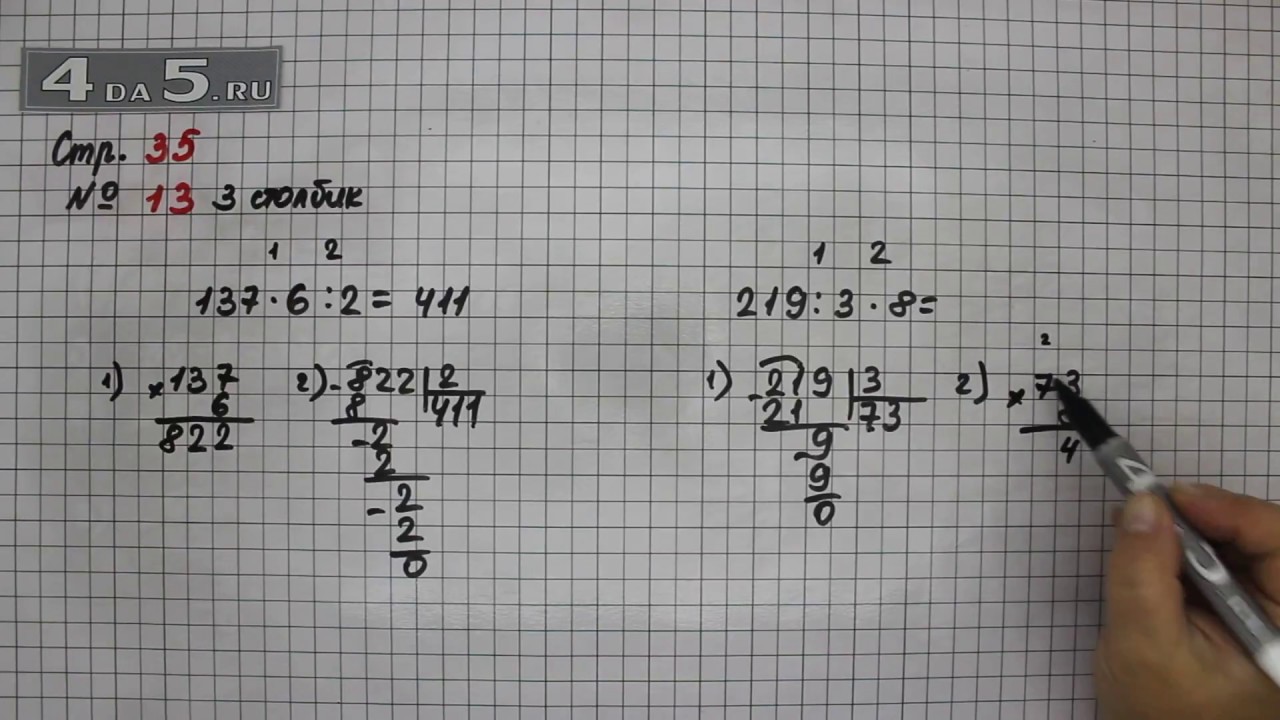 4 DA 5.RU
Стр. 35
№ 13 3 столбик
1 2
137 · 6 : 2 = 411
1) × 137
6
822
2) - 822 | 2
8 411
- 2
2
- 2
2
0
1 2
219 : 3 · 8 =
1) - 219 | 3
21 73
- 9
9
0
2
2) × 73
4